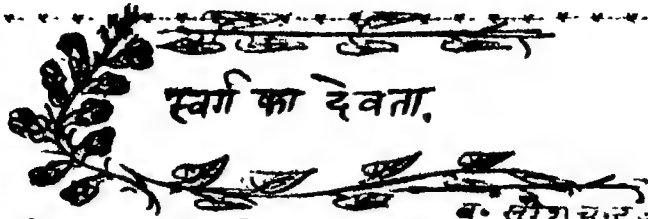 स्वर्ग का देवता.
ब.